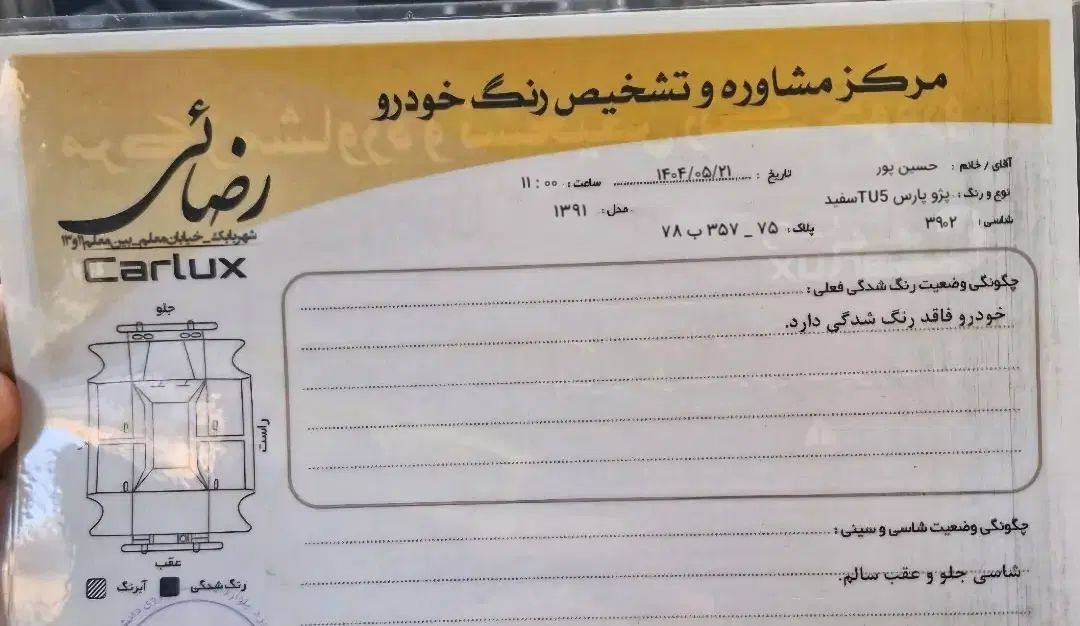 مرکز مشاوره و تشخیص رنگ خودرو
رضائی
شهربابک_خیابان معلم_بین معلم ۱۱و۱۳
Carlux
آقای / خانم : حسین پور
تاریخ : ۱۴۰۴/۰۵/۲۱
ساعت : ۱۱:۰۰
نوع و رنگ : پژو پارس TU5سفید
مدل : ۱۳۹۱
شاسی : ۳۹۰۲
پلاک : ۷۵ _ ۳۵۷ ب ۷۸
چگونگی وضعیت رنگ شدگی فعلی :
خودرو فاقد رنگ شدگي دارد.
جلو
راست
عقب
رنگ شدگی
آبرنگ
چگونگی وضعیت شاسی و سینی :
شاسی جلو و عقب سالم.